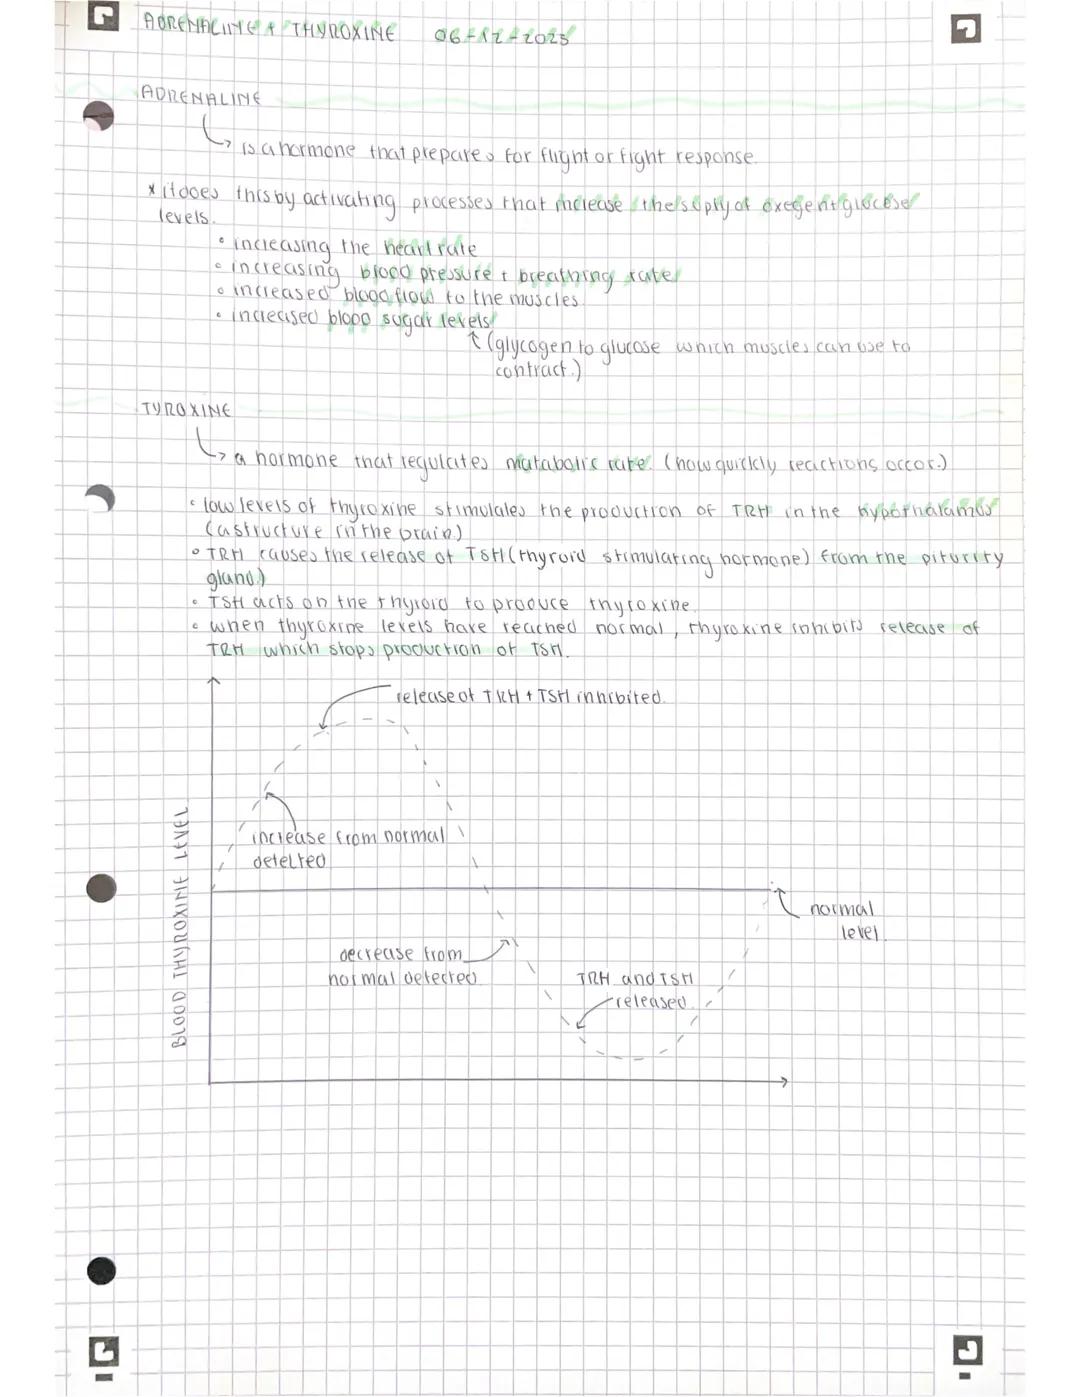 ADRENALINE + THYROXINE 06-12-2023
ADRENALINE
↳ is a hormone that prepares for flight or fight response.
* it does this by activating processes that increase the suply of oxegent glucose
levels.
• increasing the heart rate
• increasing blood pressure + breathing rate
• increased blood flow to the muscles
• increased blood sugar levels
↑ (glycogen to glucose which muscles can use to
contract.)
TYROXINE
↳ a hormone that regulates matabolic rate. (how quickly reactions occor.)
• low levels of thyroxine stimulates the production of TRH in the hypothalamus
(a structure in the brain)
• TRH causes the release of TSH (thyroid stimulating hormone) from the piturity
gland.)
• TSH acts on the thyroid to produce thyroxine.
• when thyroxine levels have reached normal, thyroxine inhibits release of
TRH which stops production of TSH.
release of TRH + TSH inhibited.
increase from normal
detected
BLOOD THYROXINE LEVEL
normal
level.
decrease from
normal detected
TRH and TSH
released.